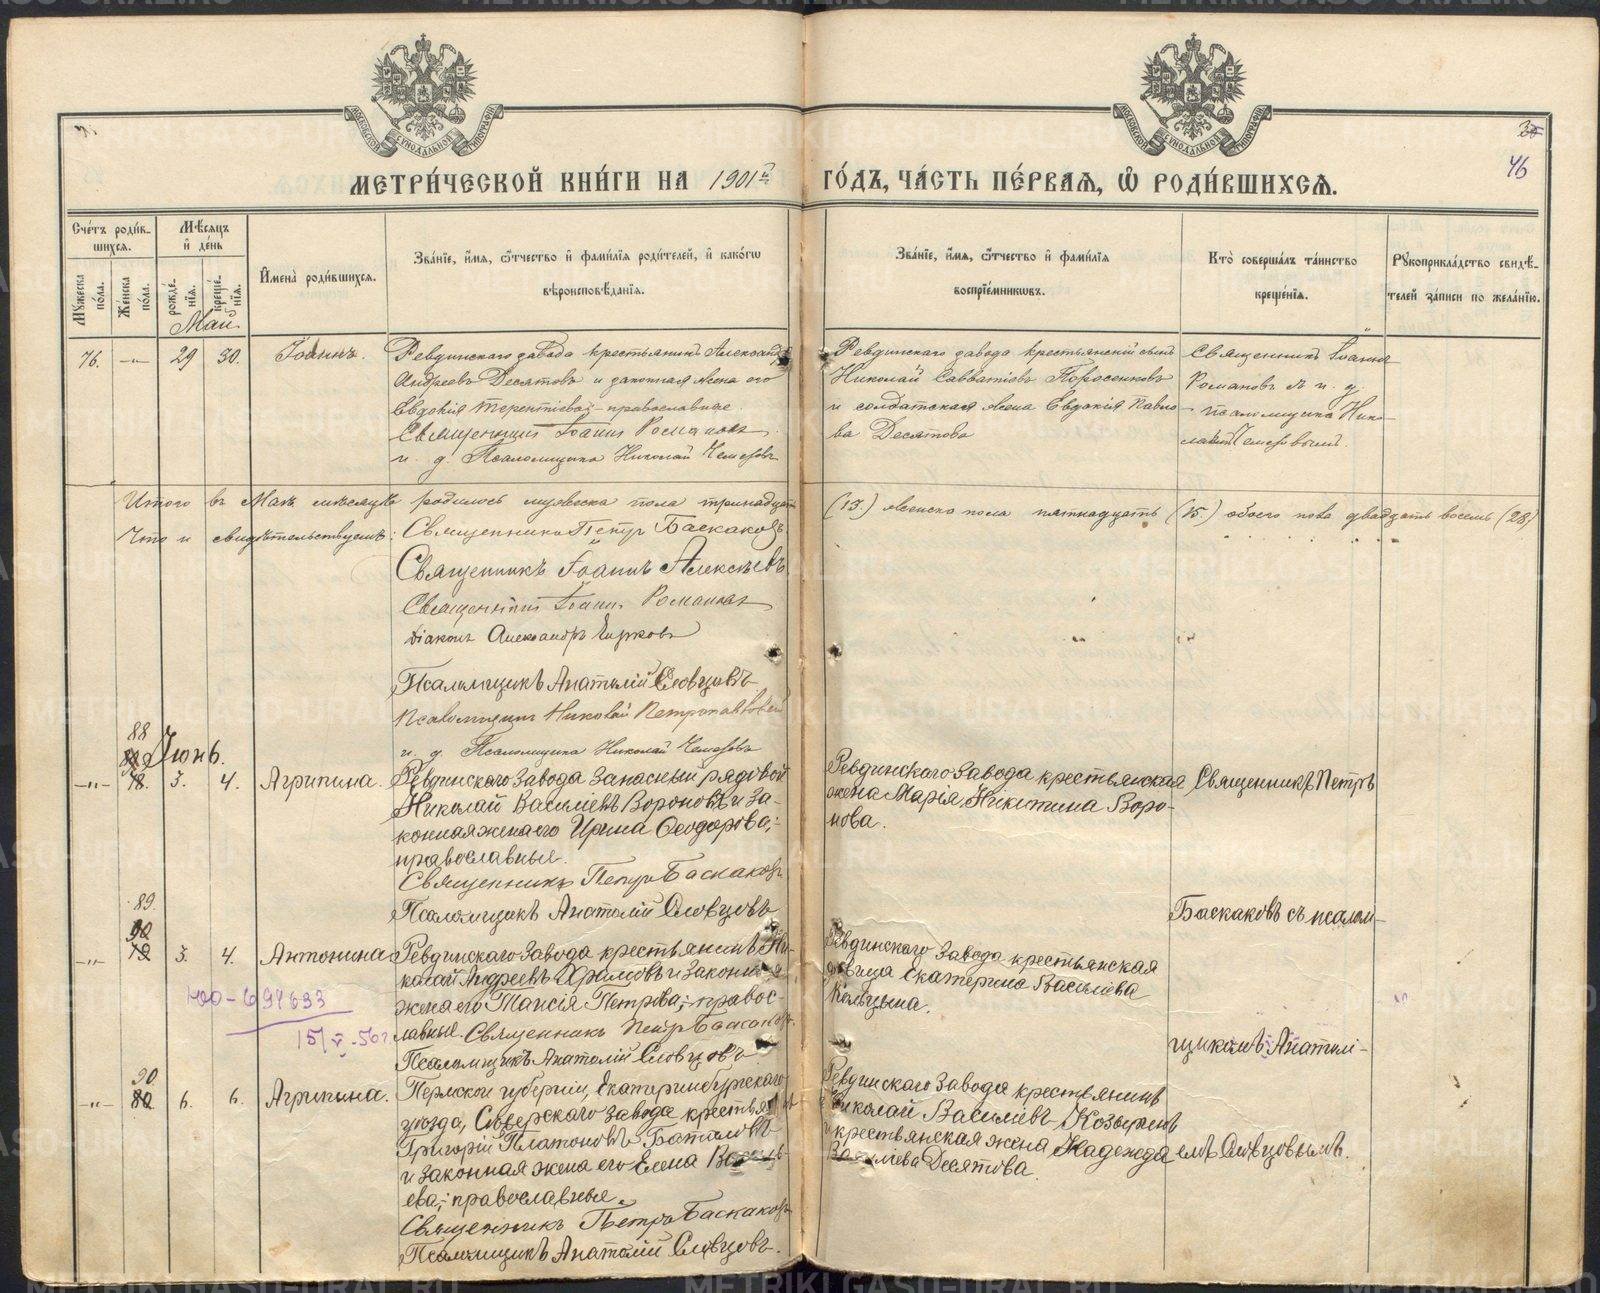 МЕТРИ́ЧЕСКОЙ КНИ́ГИ НА 1901й ГО́ДЪ, ЧА́СТЬ ПЕ́РВАѦ, Ѡ҆ РОДИ́ВШИХСѦ.
46
Сче́тъ роди́в-
шихсѧ.
Мѣ́сѧцъ
и҆ де́нь
Мꙋ́жеска по́ла.
Же́нска по́ла.
рожде́-
нїѧ.
креще́-
нїѧ.
И҆мена̀ роди́вшихсѧ.
Зва́нїе, и҆́мѧ, ѻ҆́тчество и҆ фами́лїѧ роди́телей, и҆ како́гѡ
вѣроисповѣ́данїѧ.
Зва́нїе, и҆́мѧ, ѻ҆́тчество и҆ фами́лїѧ
воспрїе́мникѡвъ.
Кто̀ соверша́лъ та́инство
креще́нїѧ.
Рꙋкоприкла́дство свидѣ́-
телей за́писи по жела́нїю.
Май
76. —"— 29 30. Іоаннъ.
Ревдинскаго завода крестьянинъ Александръ
Андреевъ Десятовъ и законная жена его
Евдокія Терентіева – православные.
Священникъ Іоаннъ Романовъ
и. д. Псаломщика Николай Чемезовъ
Ревдинскаго завода крестьянскій сынъ
Николай Савватіевъ Поросенковъ
и солдатская жена Евдокія Павло-
ва Десятова
Священникъ Іоаннъ
Романовъ и. д.
псаломщика Нико-
лаемъ Чемезовымъ.
Итого въ Маѣ мѣсяцѣ родилось мужеска пола тринадцать (13.) женска пола пятнадцать (15.) обоего пола двадцать восемь (28)
Что и свидѣтельствуемъ: Священникъ Петръ Баскаковъ
Священникъ Іоаннъ Алексѣевъ
Священникъ Іоаннъ Романовъ
діаконъ Александръ
Псаломщикъ Анатолій Словцовъ
Псаломщикъ Николай Петропавловскій
и. д. Псаломщика Николай Чемезовъ
Іюнь.
88
—"— 3. 4. Агрипина.
Ревдинскаго Завода Запасный рядовой
Николай Васильевъ Вороновъ и За-
конная жена его Ирина Ѳеодорова;-
православные.
Священникъ Петръ Баскаковъ
Псаломщикъ Анатолій Словцовъ
Ревдинскаго Завода крестьянская
жена Марія Никитина Воро-
нова.
Священникъ Петръ
Баскаковъ съ псалом-
щикомъ Анатолі-
емъ Словцовымъ.
89
—"— 3. 4. Антонина
Ревдинскаго Завода крестьянинъ Ни-
колай Андреевъ Храмовъ и Законная
жена его Таисія Петрова;- православ-
лавные. Священникъ Петръ Баскаковъ.
Псаломщикъ Анатолій Словцовъ
Ревдинскаго Завода крестьянская
дѣвица Екатерина Васильева
15/V-56г.
90
—"— 6. 6. Агрипина.
Пермской губерніи, Екатеринбургскаго
уѣзда, Сѣверскаго Завода крестьянинъ
Григорій Платоновъ Баталовъ
и законная жена его Елена Василь-
ева;- православные.
Священникъ Петръ Баскаковъ
Псаломщикъ Анатолій Словцовъ.
Ревдинскаго Завода крестьянинъ
Николай Васильевъ Козыринъ
и крестьянская жена Надежда
Васильева Десятова.